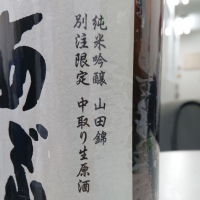 純米吟醸 山田錦
別注限定 中取り生原酒
あぶ